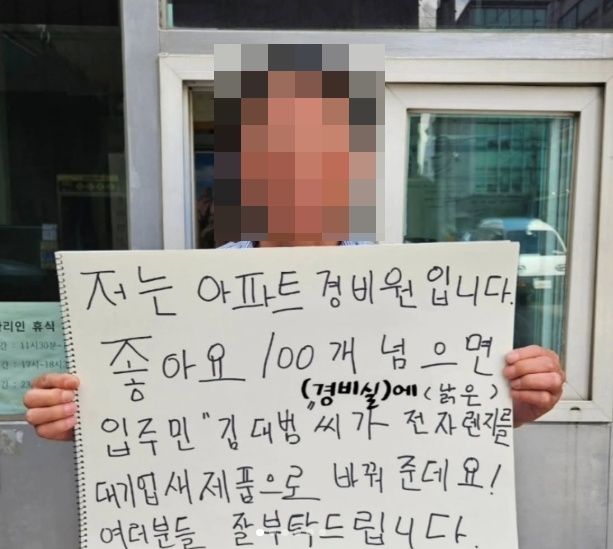 저는 아파트 경비원입니다.
좋아요 100개 넘으면
(경비실)에 (낡은)
입주민 "김대범"씨가 전자렌지를
대기업 새제품으로 바꿔 준데요!
여러분들 잘부탁드립니다.
리인 휴식
간 : 11시30분-
간 : 17시-18시